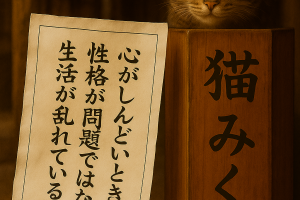 心がしんどいとき
性格が問題ではな
生活が乱れている
猫みく